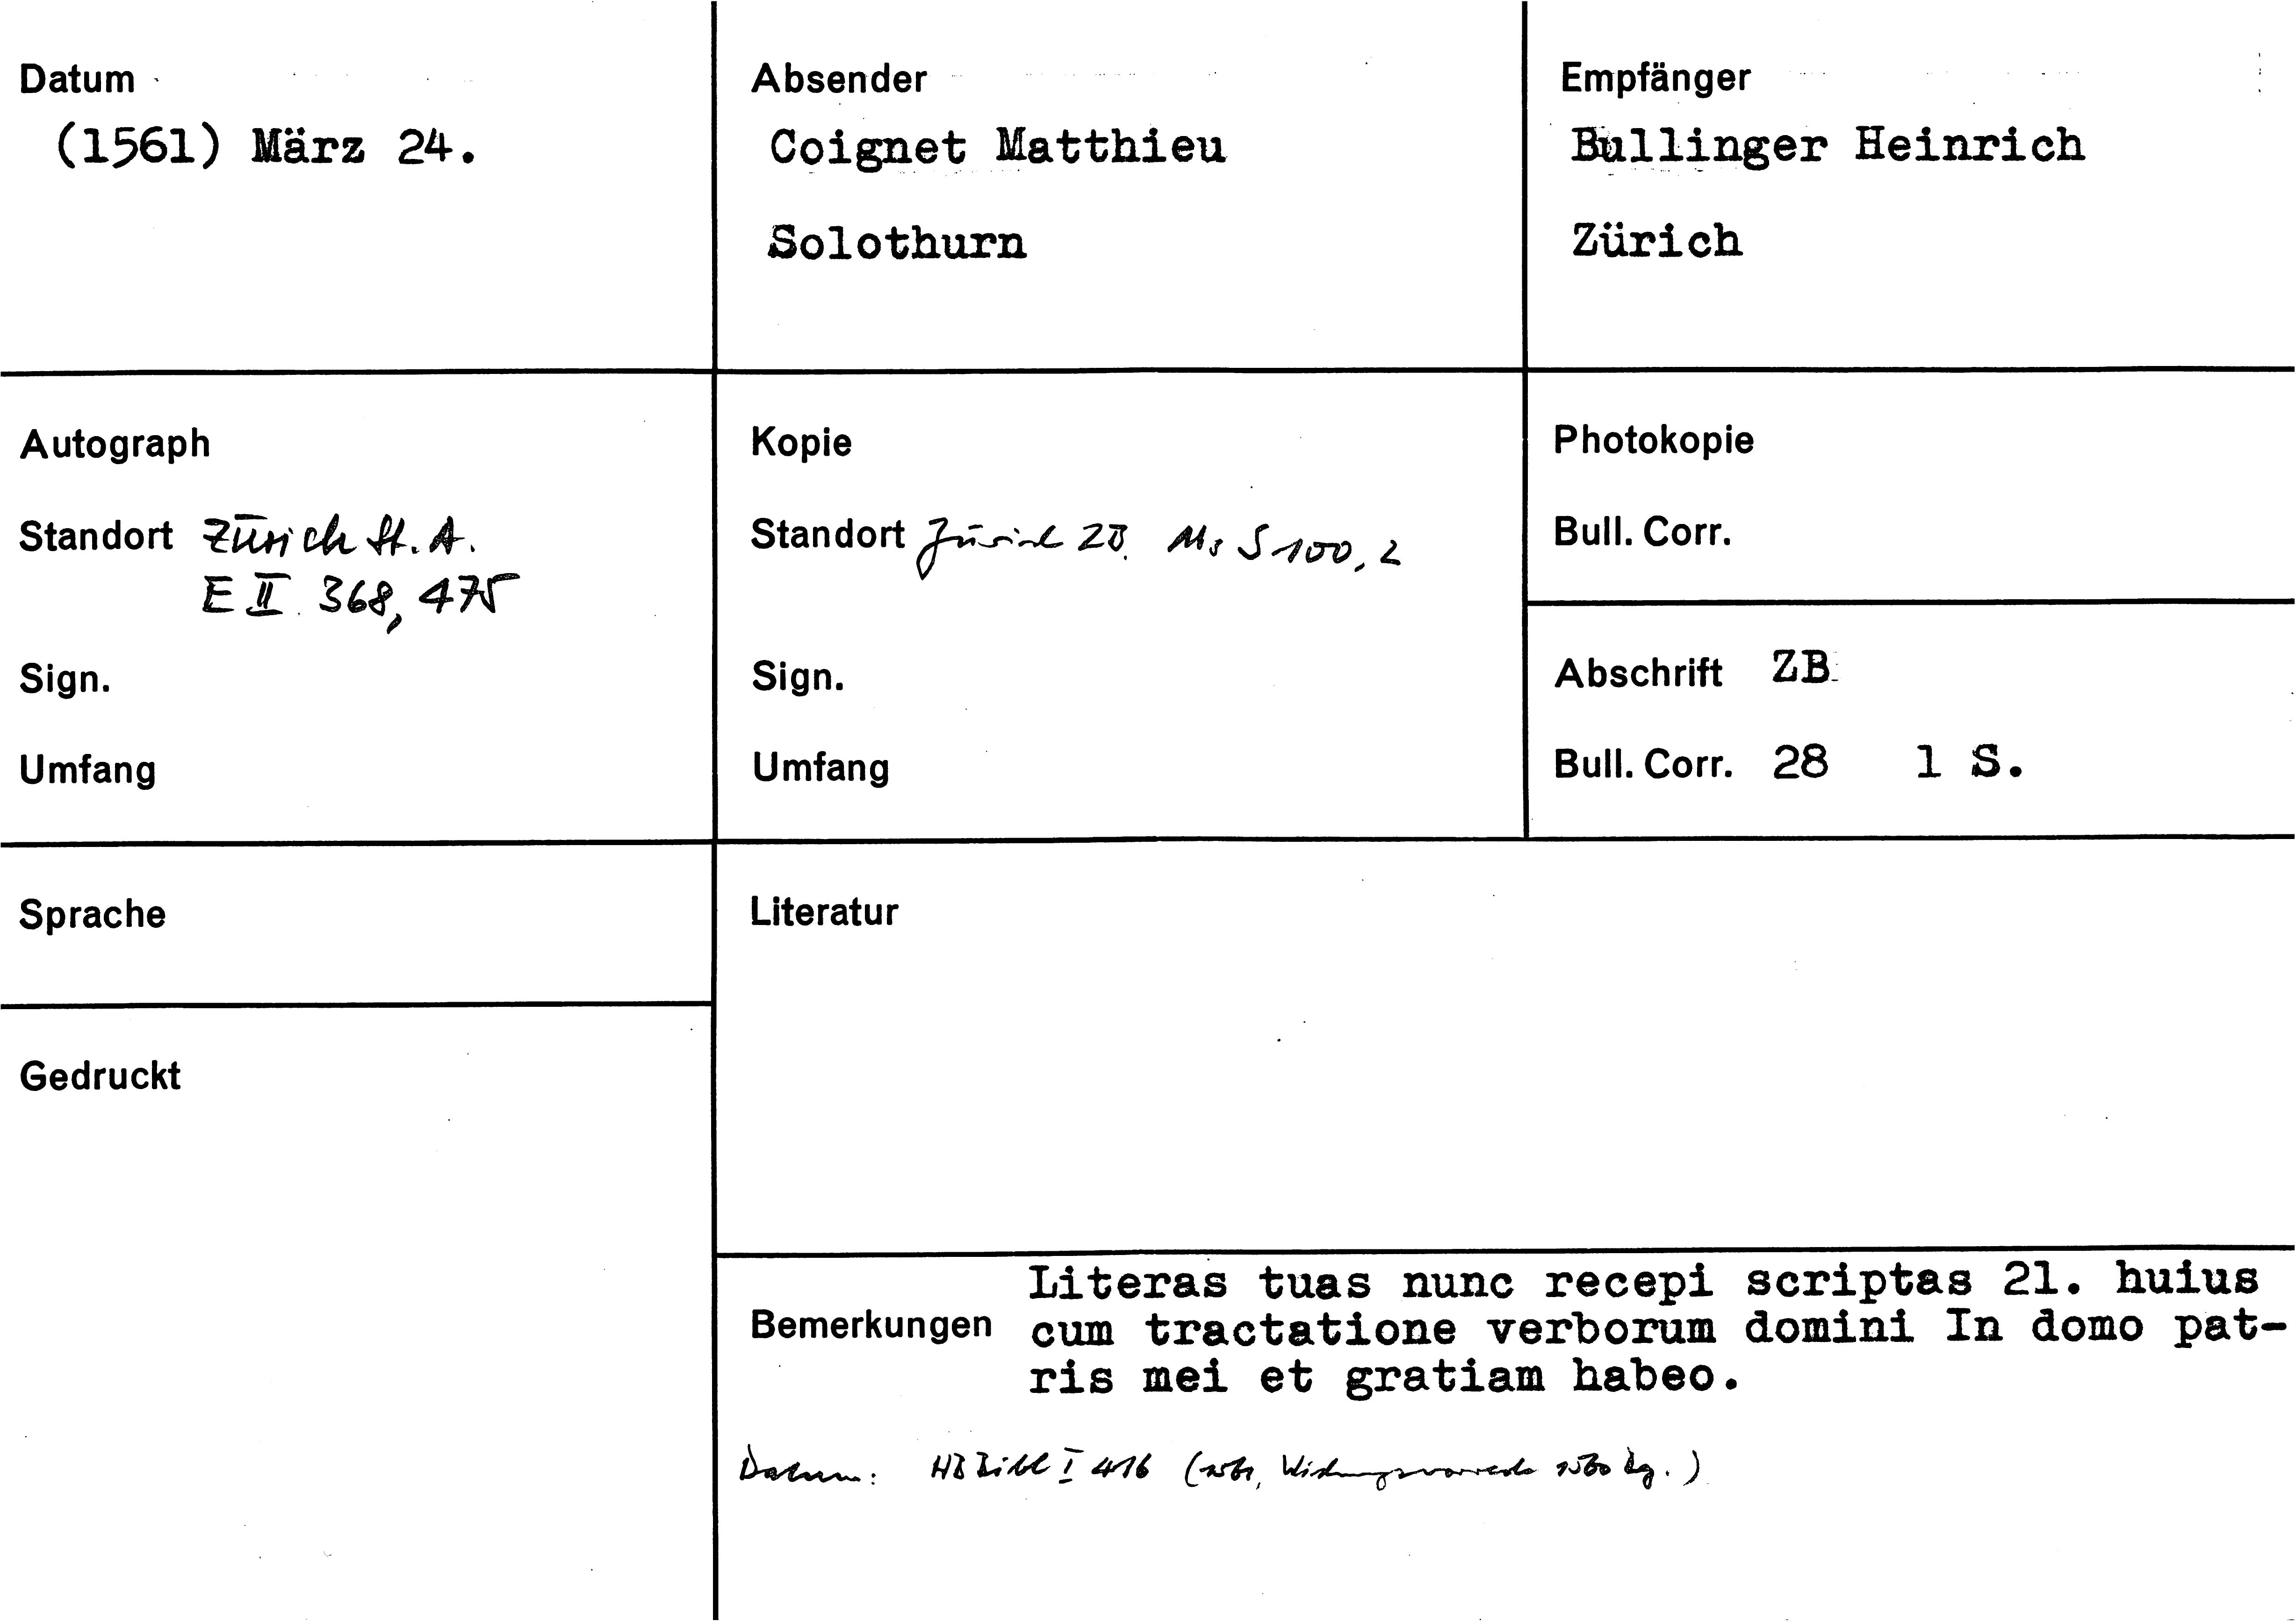 Datum
(1561) März 24.
Absender
Coignet Matthieu
Solothurn
Empfänger
Bullinger Heinrich
Zürich
Autograph
Standort Zürich St. A.
E II 368, 475
Sign.
Umfang
Kopie
Standort Zürich ZB. Ms S 100, 2
Sign.
Umfang
Photokopie
Bull. Corr.
Abschrift ZB
Bull. Corr. 28 1 S.
Sprache
Literatur
Gedruckt
Bemerkungen
Literas tuas nunc recepi scriptas 21. huius
cum tractatione verborum domini In domo pat-
ris mei et gratiam habeo.
Datum: HB Bibl I 416 (1561, Widmungsvorrede 1560 )